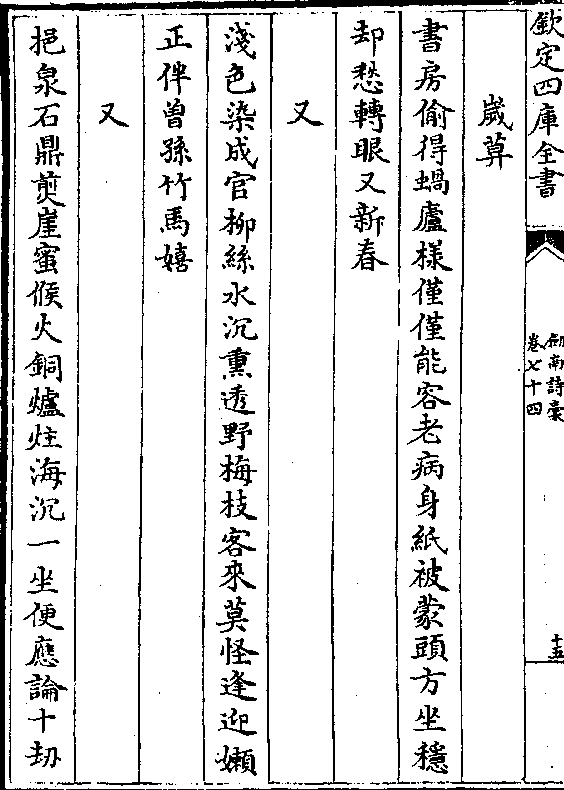 欽定四庫全書
劍南詩稾
卷七十四
十五
歳莫
書房偷得蝸廬様僅僅能容老病身紙被蒙頭方坐穩
却愁轉眼又新春
又
淺色染成官柳絲水沉熏透野梅枝客來莫怪逢迎嬾
正伴曽孫竹馬嬉
又
挹泉石鼎煎崖蜜候火銅爐炷海沉一坐便應論十劫